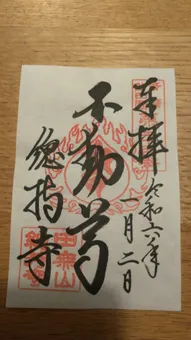 奉拝
令和六年
一月二日
不動尊
總持寺